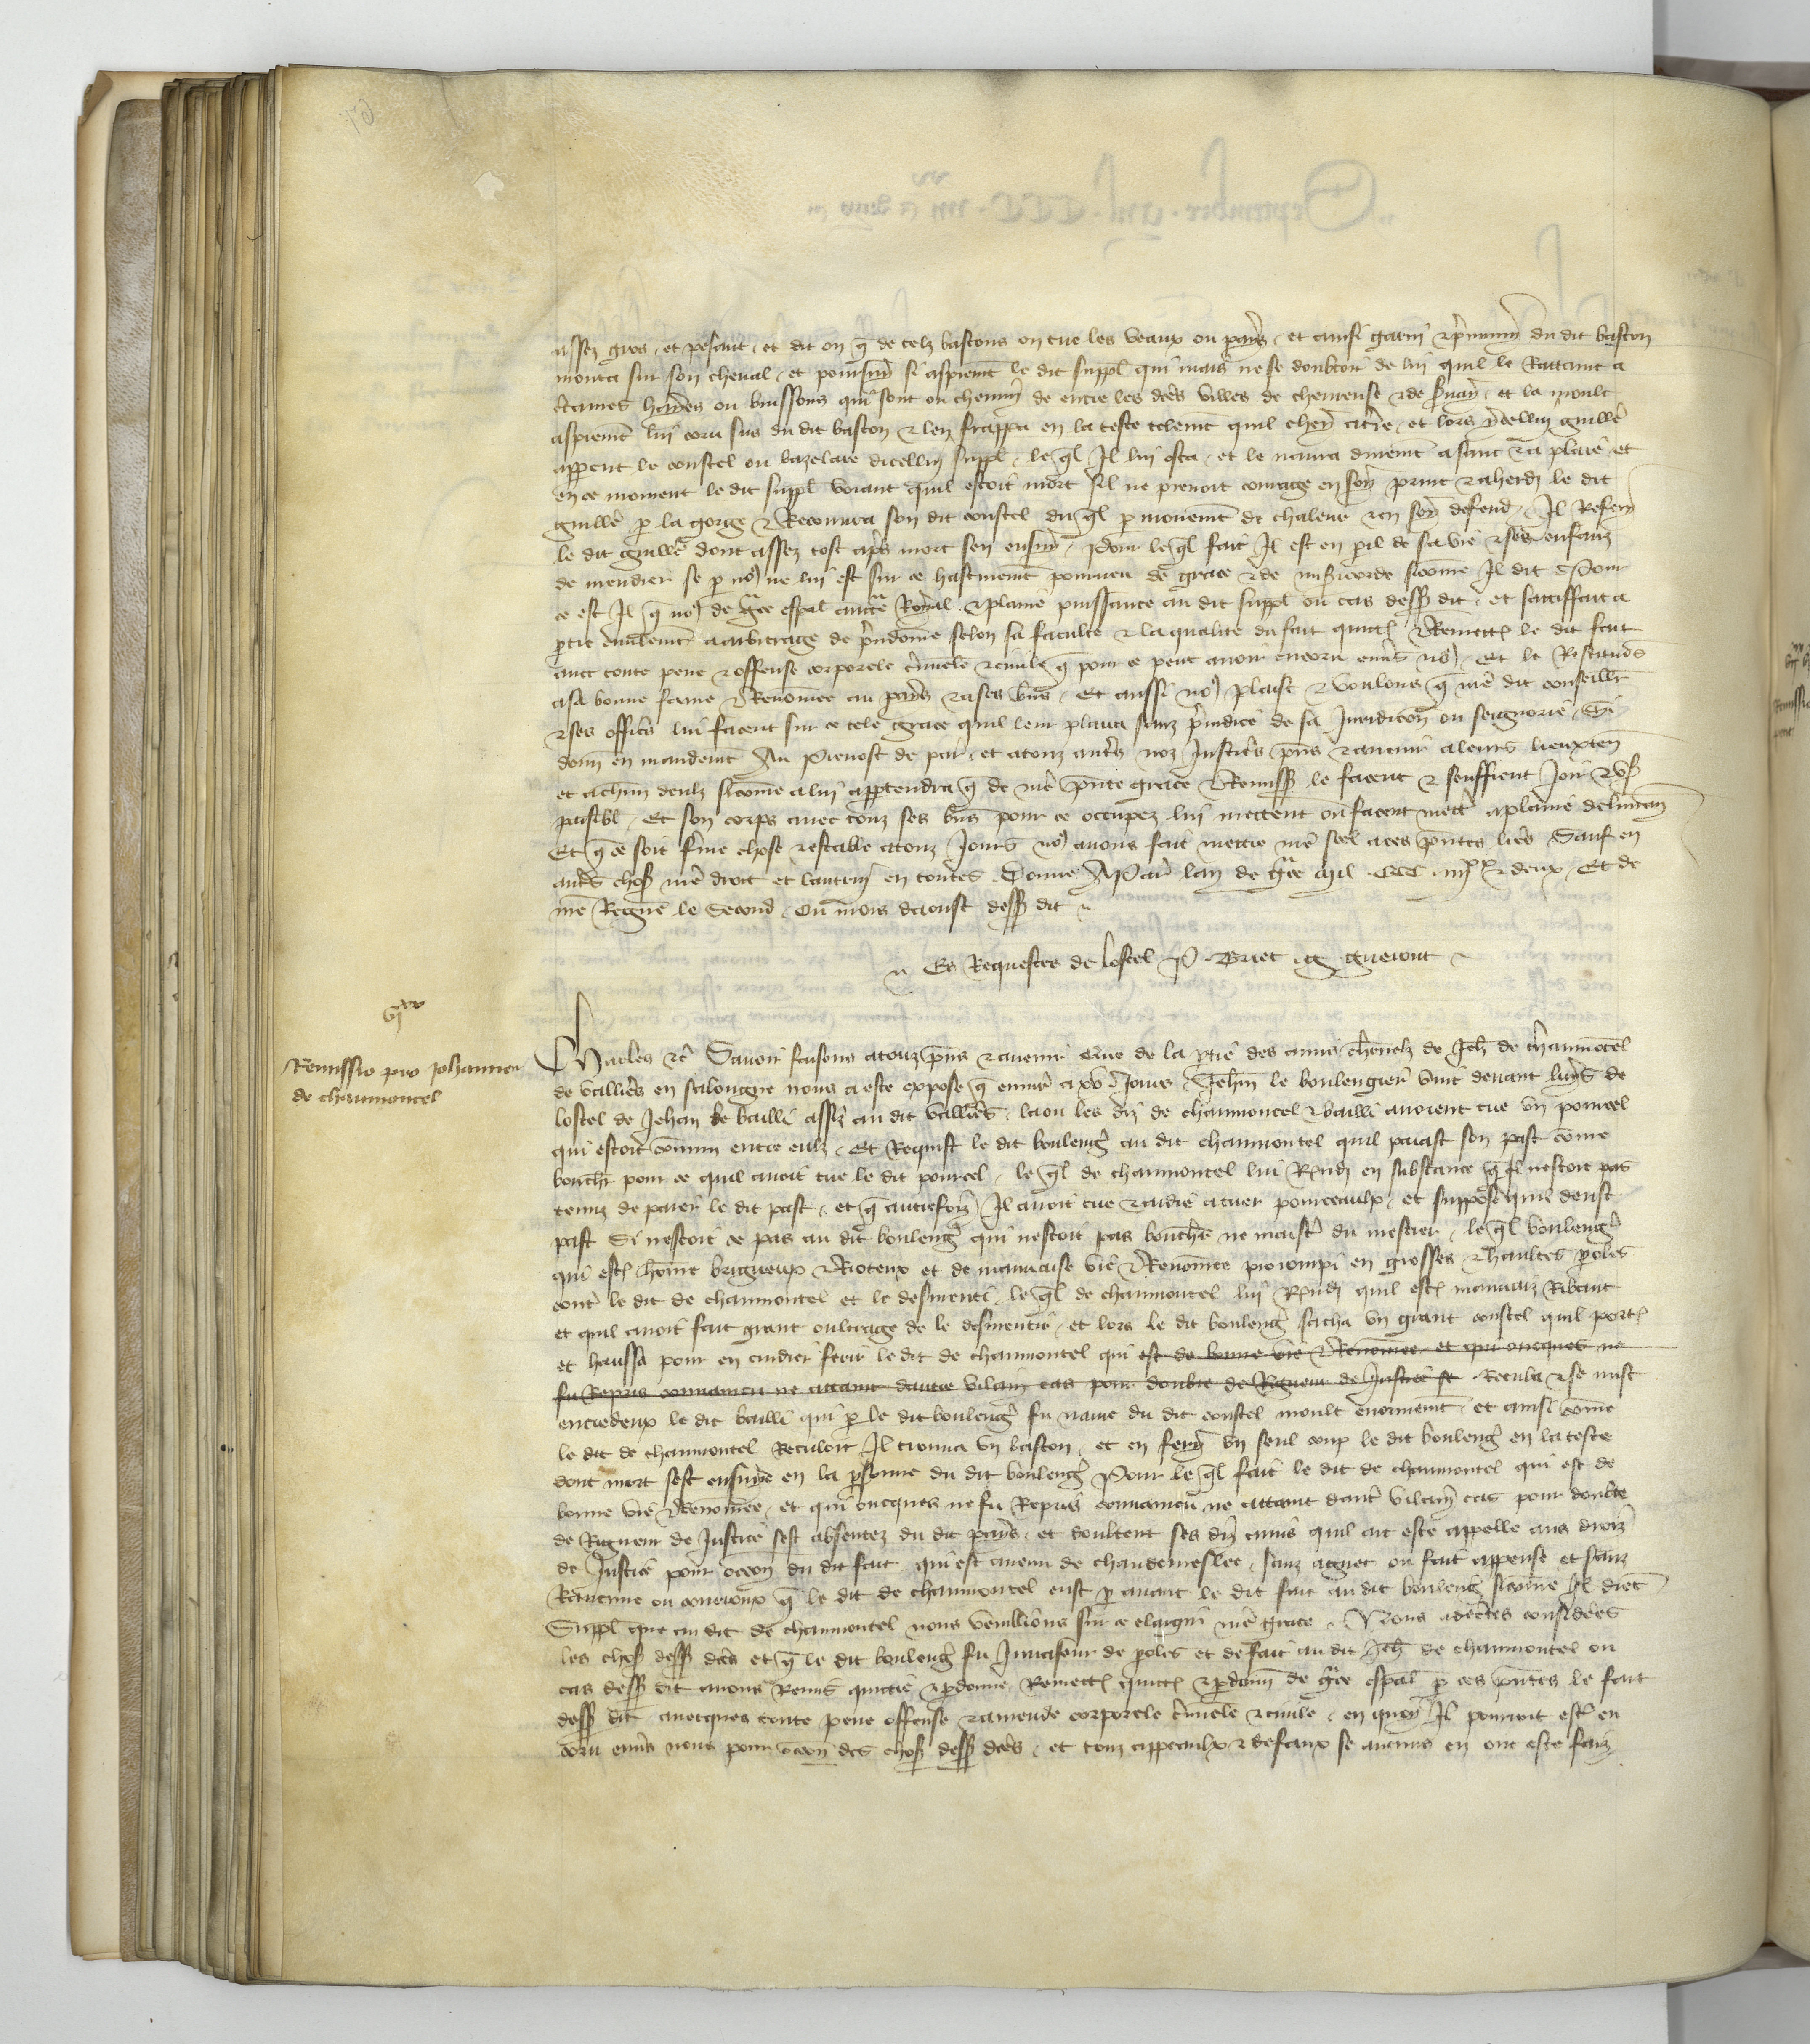 assez gros et pesant et dit on q̄ de telz bastons on tue les veaux ou pays et ainsi garni du dit baston
monta sur son cheval et si asprement le dit suppl qui mais ne se doubtoit de lui quil le Rattaint a
ou buissons qui sont ou chemin de entre les dc̄es villes de chevreuse et de et la moult
asprement lui couru sus du dit baston & len frappa en la teste telemt quil cheÿ a t̄re et lors
le coustel ou bazelaire dicellui suppl leq̄l Il lui osta et le navra durement a sanc & a plaie et
en ce moment le dit suppl voiant quil estoit mort sil ne prenoit courage en soy print & aherdi le dit
guille p la gorge & Recouvra son dit coustel duq̄l p mouvemt de chaleur & en soy defend Il Refery
le dit guille dont assez tost ap̄s mort sen ensuy pour leq̄l fait Il est en pil de sa vie & ses enfans
de mendier se p no9 ne lui est sur ce hastivemt pourveu de grace & de mis̄icorde sicōme Il dit Pour
ce est Il q̄ no9 de gr̄ce esp̄al Royal & plaine puissance au dit suppl ou cas dess9 dit et satiffait a
ptie a arbitrage de p̄udōme selon sa faculte & la qualite du fait quitt9 & Remett9 le dit fait
avec toute pene & offense corporele c̄mīele & civile q̄ pour ce peut avoir encoru env̄s no9 Et le Restituōs
a sa bonne fame & Renōmee au pays & a ses bīēs Et aussi no9 plaist & voulons q̄ nr̄e dit conseillr
& ses offic̄s lui facent sur ce tele grace quil leur plaira sanz p̄iudice de sa Juridicōn ou seignorie Si
donn en mandemt Au Prevost de par et a touz aut̄s noz Justic̄s p̄ns & avenir a leurs lieuxten
et a chūn deulz sicōme a lui appartendra q̄ de nr̄e p̄nte grace & Remiss le facent & seuffrent Joir & us̄
paisibl Et son corps avec touz ses bīēs pour ce occupez lui mettent ou facent mett̄ a plaine delivran
Et q̄ ce soit f̄me chose & estable a touz Jours no9 avons fait mettre nr̄e seel a ces p̄ntes lr̄es Sauf en
aut̄s chos nr̄e droit et lautruy en toutes Donne A Par lan de gr̄ce mil CCC iiijxx & deux Et de
nr̄e Regne le Second Ou mois daoust dess9 dit
Es Requestes de lostel P. Briet .g. gueront
vjxx
Remissio pro Johanne
de chaumontel
Charles &c̄ Savoir faisons a touz p̄ns & avenir Que de la ptie des amis charnelz de Jeh̄ de chaumontel
de vallieres en salongne nous a este expose q̄ a xv Jours Jeh̄n le boulengier vint devant luys de
lostel de Jehan le bailli assiz au dit vallieres la ou les diz de chaumontel & bailli avoient tue un pourcel
qui estoit cōmun entre eulz Et Requist le dit bouleng̃ au dit chaumontel quil paiast son past cōme
bouch̃ pour ce quil avoit tue le dit pourcel leq̄l de chaumontel lui R̄ndi en substance q̄ Il nestoit pas
tenuz de paier le dit past et q̄ autrefoiz Il avoit tue & aidie a tuer pourceaulx et suppose quil deust
past Si nestoit ce pas au dit bouleng̃ qui nestoit pas bouch̃ ne maist̄ du mestier leq̄l bouleng̃
qui est9 hōme brigueux & Rioteux et de mauvaise vie & Renōmee prorompi en grosses & haultes poles
cont̄ le dit de chaumontel et le desmenti leq̄l de chaumontel lui R̄ndi quil est9 mauvaiz Ribaut
et quil avoit fait grant oultrage de le desmentir et lors le dit bouleng̃ sacha un grant coustel quil port9
et haussa pour en cuidier ferir le dit de chaumontel qui est de bonne vie & Renōmee et qui oncques ne
fu Repris convaincu ne attaint dautre vilain cas pour doubte de Rigueur de Justice se Recula & se mist
entredeux le dit bailli qui p le dit bouleng̃ fu navre du dit coustel moult enormemt et ainsi cōme
le dit de chaumontel Reculoit Il trouva un baston et en fery un seul coup le dit bouleng̃ en la teste
dont mort sest ensuivie en la psonne du dit bouleng̃ Pour leq̄l fait le dit de chaumontel qui est de
bonne vie & Renōmee et qui oncques ne fu Repris convaincu ne attaint daut̄ vilain cas pour doubte
de Rigueur de Justice sest absentez du dit pays et doubtent ses diz amis quil ait este appelle aus droiz
de Justice pour occōn du dit fait qui est avenu de chaudemeslee sanz aguet ou fait appense et sanz
Rancune ou courroux q̄ le dit de chaumontel eust p avant le dit fait au dit bouleng̃ sicōme Il dient
Suppl que au dit de chaumontel nous veuillions sur ce elargir nr̄e grace Nous adec̄tes considerees
les chos dess9 dc̄es et q̄ le dit bouleng̃ fu Invaseur de poles et de fait au dit Jeh̄ de chaumontel ou
cas dess9 dit avons Remis quictie & pdonne Remett9 quitt9 & pdonn de gr̄ce esp̄al p ces p̄ntes le fait
dess9 dit avecques toute pene offense & amende corporele c̄mīele & civile en quoy Il pourroit est̄ en
coru env̄s nous pour occōn des chos dess9 dc̄es et touz appeaulx & defaux se aucuns en ont este faiz